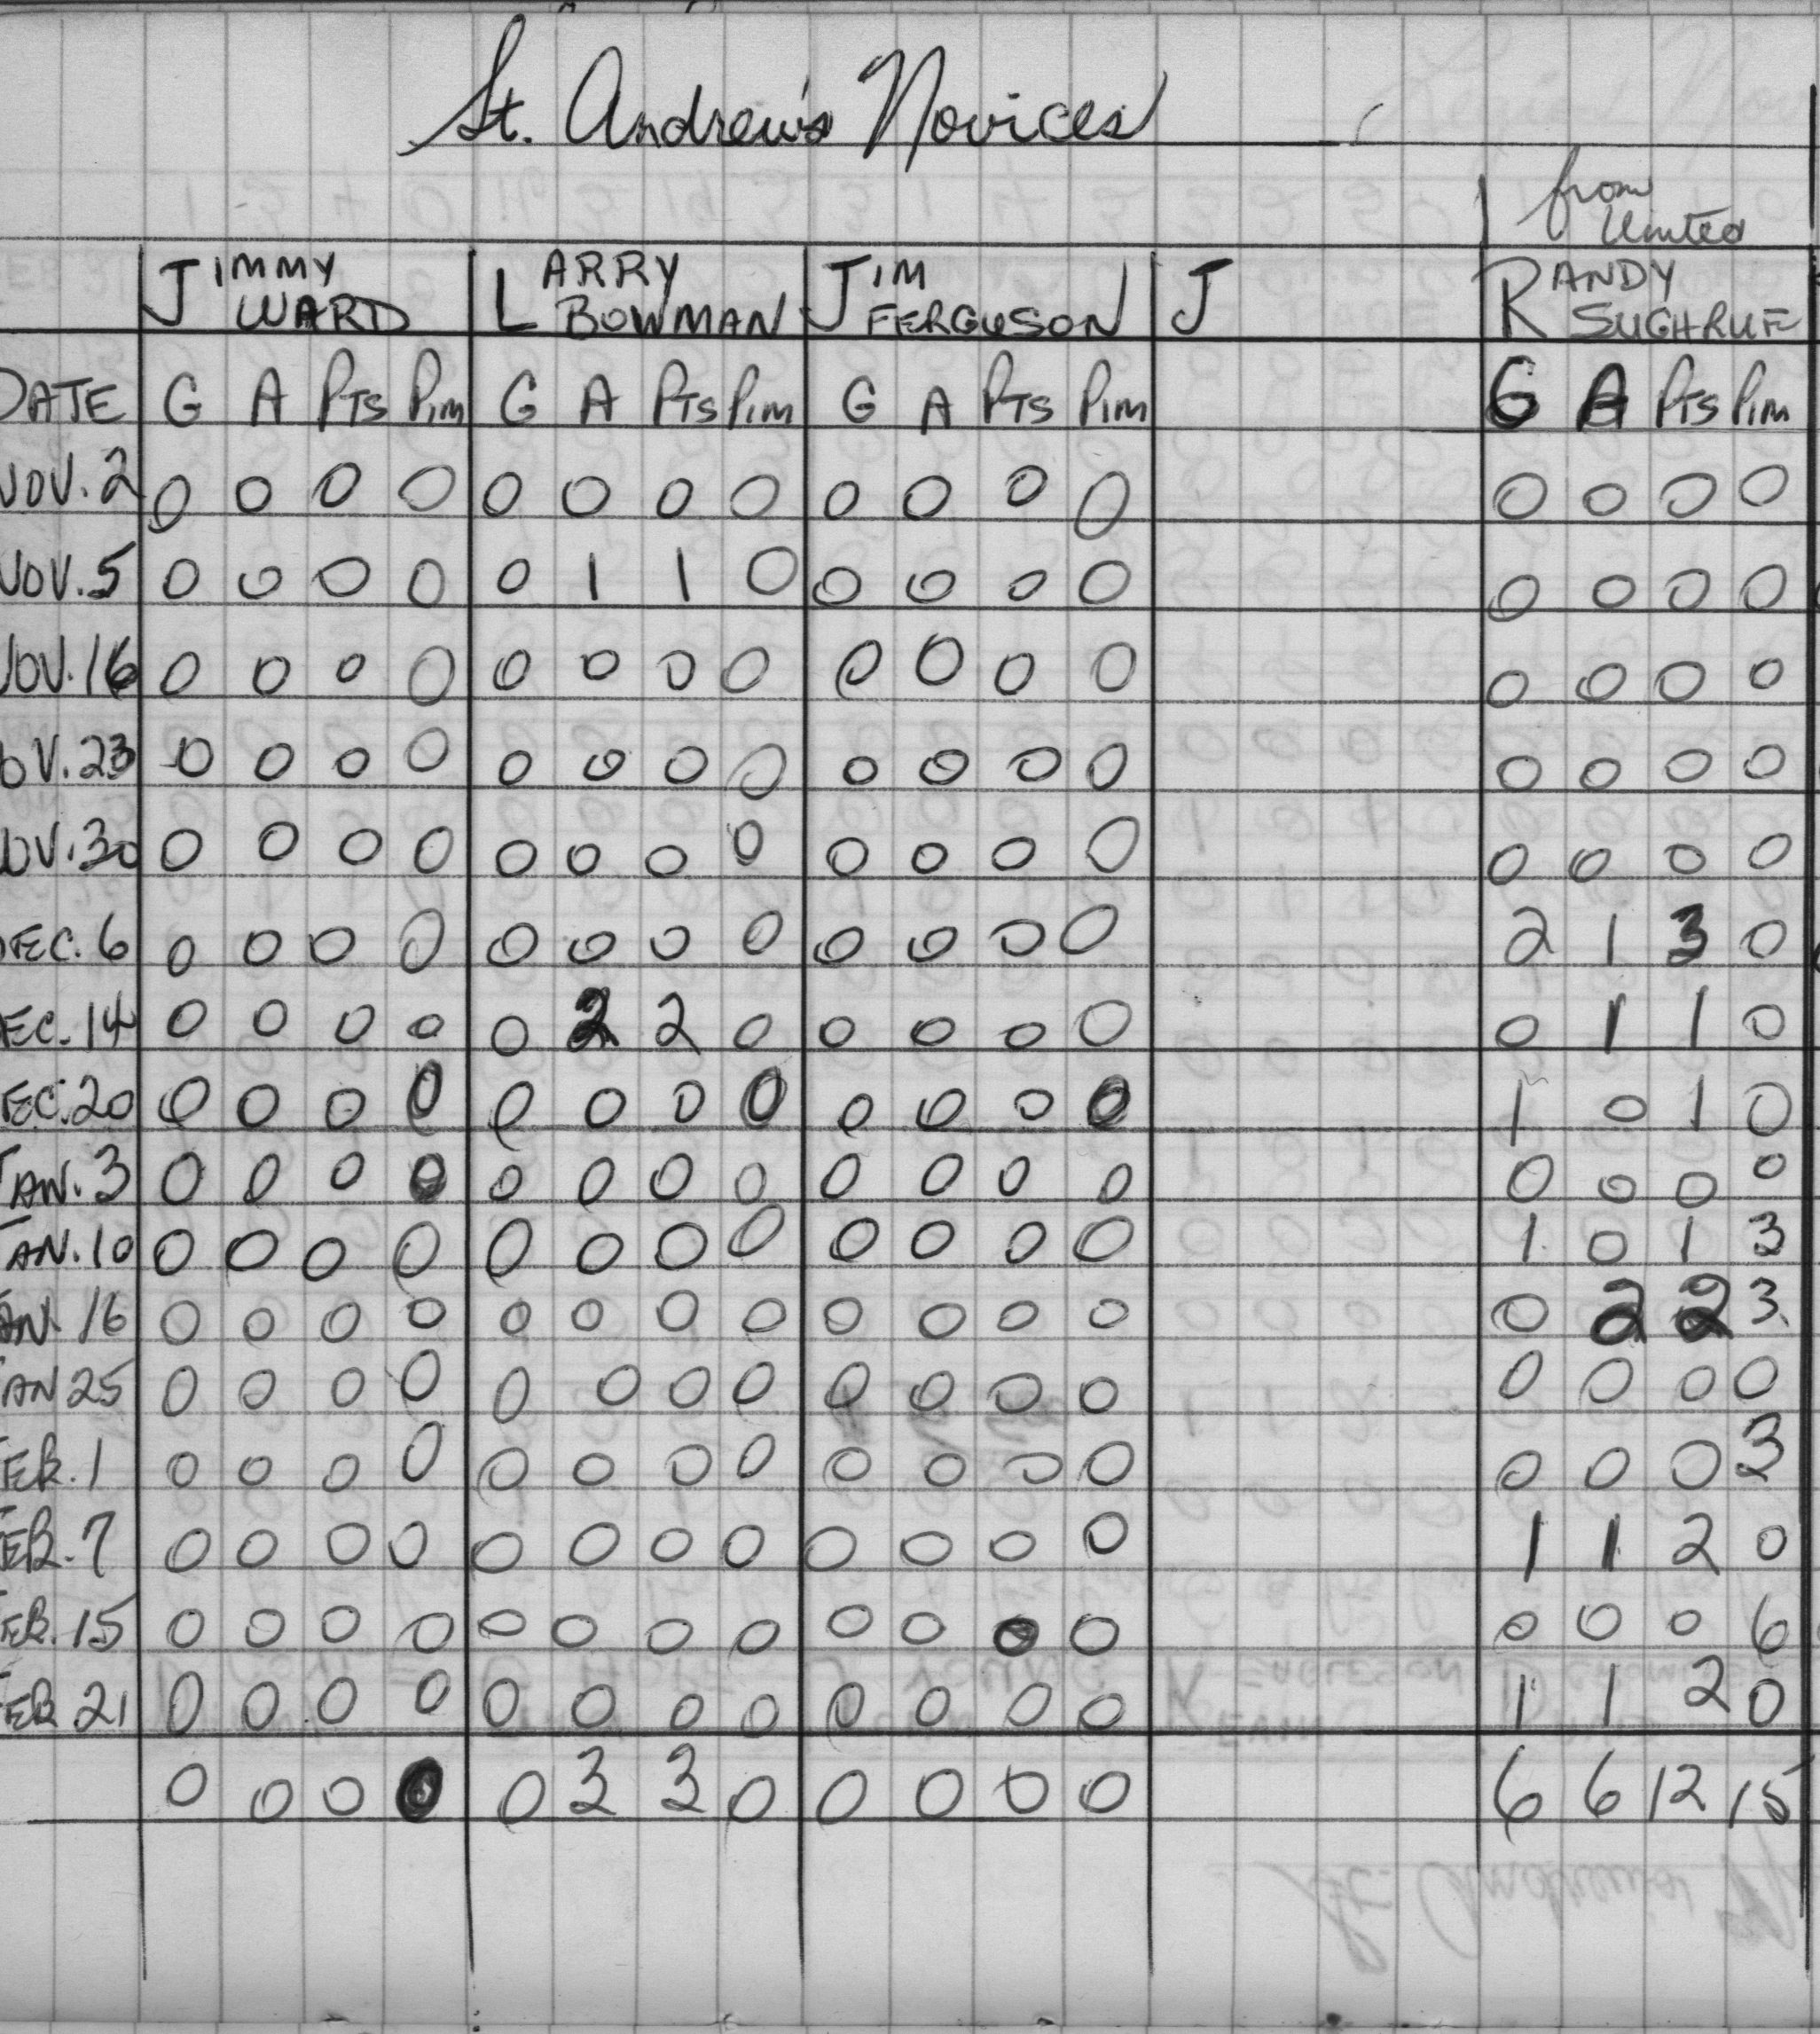 St. Andrew's Novices
from
United
JIMMY WARD LARRY BOWMAN JIM FERGUSON J RANDY SUGHRUE
DATE G A PTS PIM G A PTS PIM G A PTS PIM G A PTS PIM
NOV. 2 0 0 0 0 0 0 0 0 0 0 0 0 0 0 0 0
NOV. 5 0 0 0 0 0 1 1 0 0 0 0 0 0 0 0 0
NOV. 16 0 0 0 0 0 0 0 0 0 0 0 0 0 0 0 0
NOV. 23 0 0 0 0 0 0 0 0 0 0 0 0 0 0 0 0
NOV. 30 0 0 0 0 0 0 0 0 0 0 0 0 0 0 0 0
DEC. 6 0 0 0 0 0 0 0 0 0 0 0 0 2 1 3 0
DEC. 14 0 0 0 0 0 2 2 0 0 0 0 0 0 1 1 0
DEC. 20 0 0 0 0 0 0 0 0 0 0 0 0 1 0 1 0
JAN. 3 0 0 0 0 0 0 0 0 0 0 0 0 0 0 0 0
JAN. 10 0 0 0 0 0 0 0 0 0 0 0 0 1 0 1 3
JAN. 16 0 0 0 0 0 0 0 0 0 0 0 0 0 2 2 3
JAN 25 0 0 0 0 0 0 0 0 0 0 0 0 0 0 0 0
FEB. 1 0 0 0 0 0 0 0 0 0 0 0 0 0 0 0 3
FEB. 7 0 0 0 0 0 0 0 0 0 0 0 0 1 1 2 0
FEB. 15 0 0 0 0 0 0 0 0 0 0 0 0 0 0 0 6
FEB 21 0 0 0 0 0 0 0 0 0 0 0 0 1 1 2 0
0 0 0 0 0 3 3 0 0 0 0 0 6 6 12 15